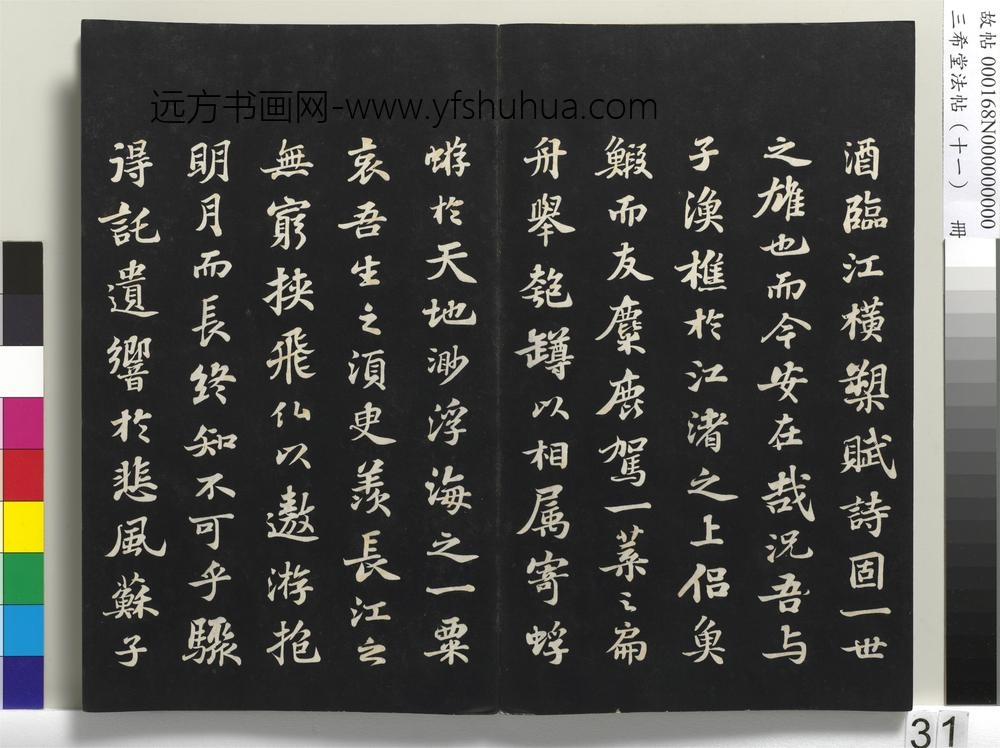 酒臨江橫槊賦詩固一世
之雄也而今安在哉況吾与
子漁樵於江渚之上侶魚
鰕而友麋鹿駕一葉之扁
舟舉匏罇以相属寄蜉
蝣於天地渺浮海之一粟
哀吾生之須臾羨長江之
無窮挾飛仙以遨游抱
明月而長終知不可乎驟
得託遺響於悲風蘇子
远方书画网-www.yfshuhua.com
故帖 000168N000000000
三希堂法帖（十一） 冊
31